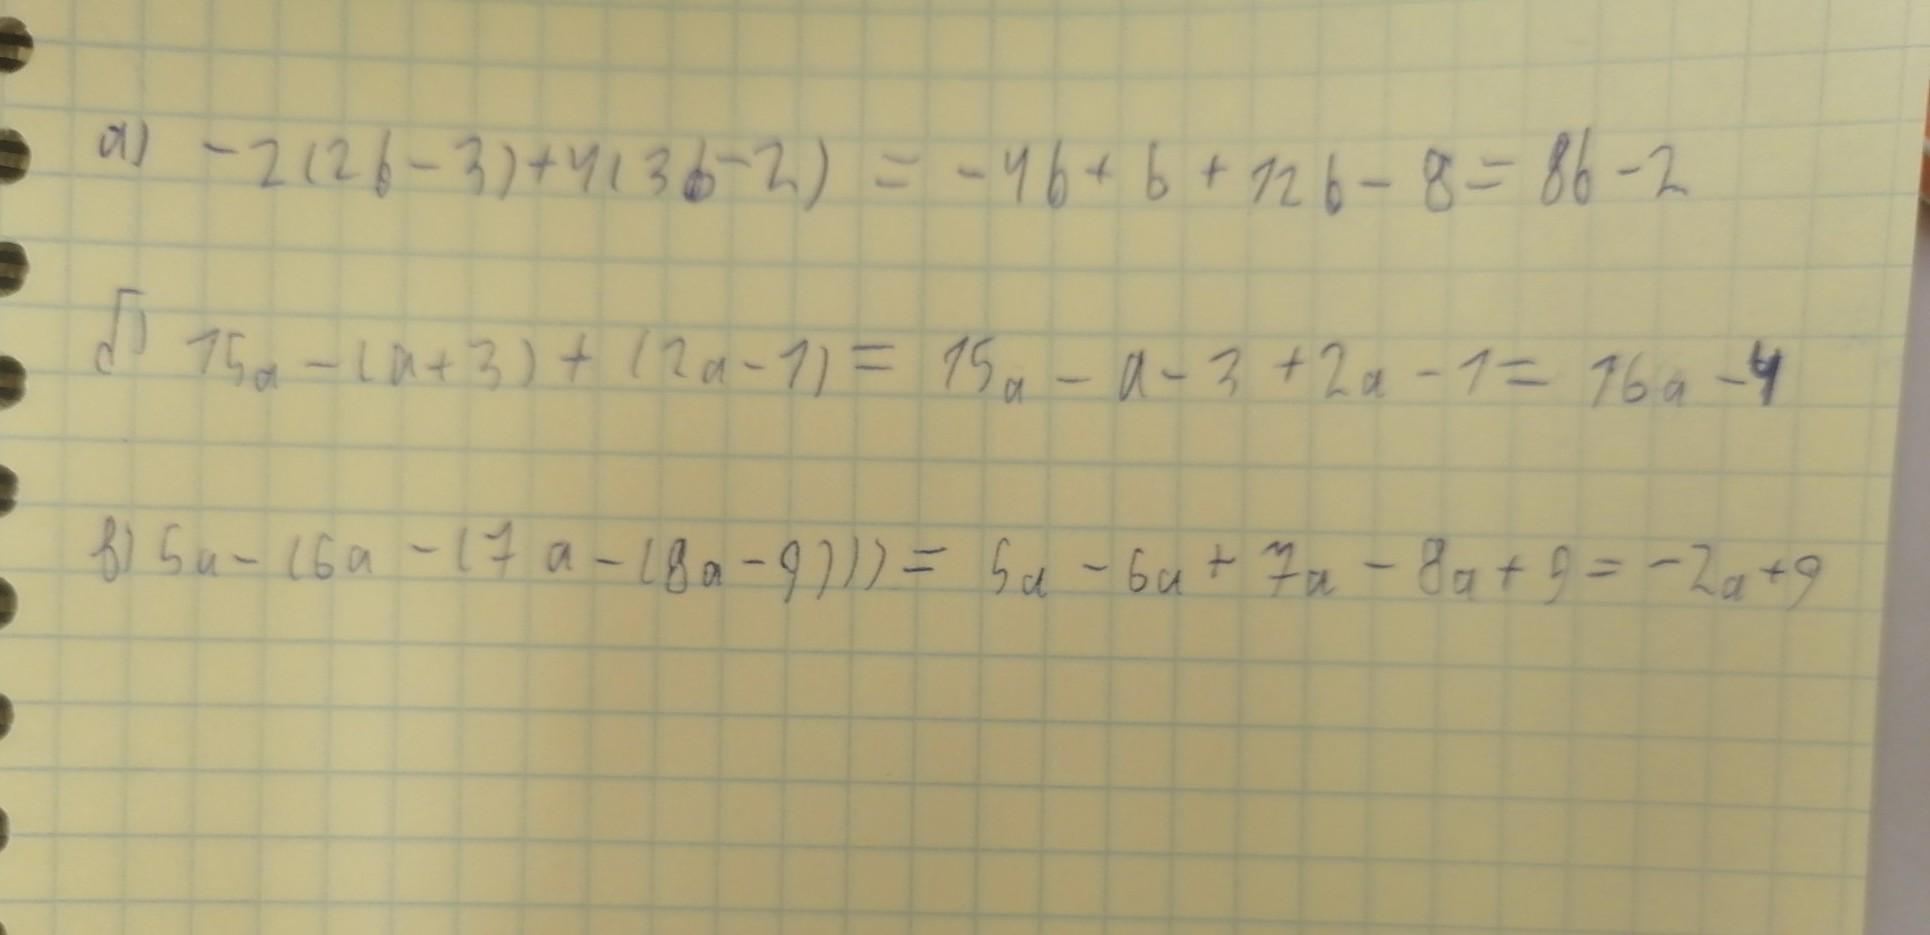 а) -2(2b-3)+4(3b-2) = -4b+6+12b-8=8b-2
б) 15a-(a+3)+(2a-1)=15a-a-3+2a-1=16a-4
в) 5a-(6a-(7a-(8a-9)))=5a-6a+7a-8a+9=-2a+9